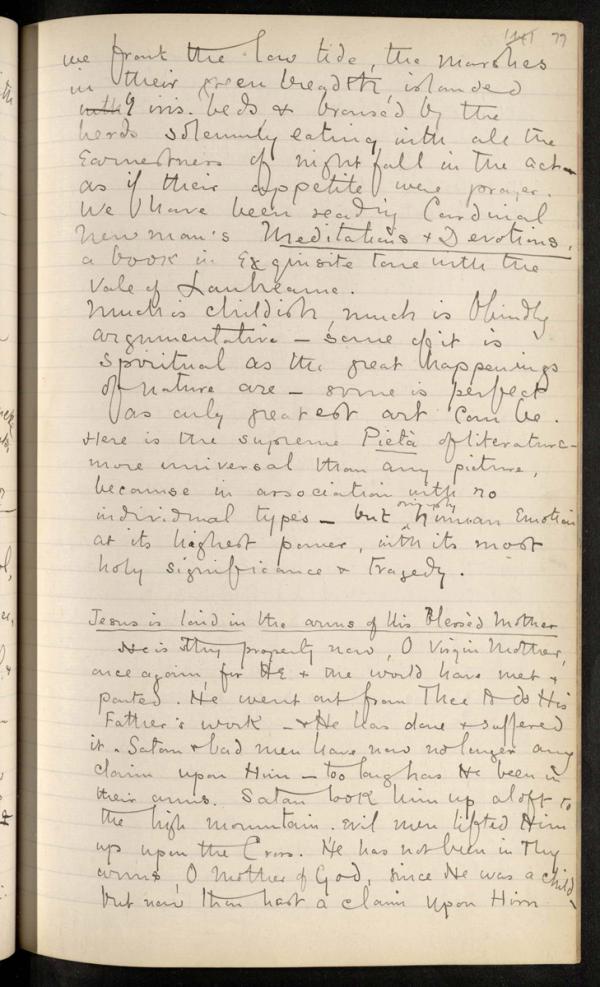 77
we front the low tide, the marshes
in their green breadth, islanded
with iris-beds & browsed by the
herds solemnly eating with all the
Earnestness of nightfall in the act –
as if their appetite were prayer.
We have been reading Cardinal
Newman's Meditations & Devotions,
a book in Exquisite tone with the
Vale of
Much is childish, much is blindly
argumentative – some of it is
Spiritual as the great happenings
of nature are – some is perfect
as only greatest art can be.
Here is the supreme Pietà of literature –
more universal than any picture,
because in association with no
individual types – but with human Emotion
at its highest power, with its most
holy significance & tragedy.
Jesus is laid in the arms of His Blessèd Mother
He is Thy property now, O Virgin Mother,
once again, for He & the world have met &
parted. He went out from Thee to do His
Father's work – & He has done & suffered
it. Satan & bad men have now no longer any
claim upon Him – too long has He been in
their arms. Satan took Him up aloft to
the high mountain. Evil men lifted Him
up upon the Cross. He has not been in Thy
arms, O Mother of God, since He was a child,
but now Thou hast a claim upon Him